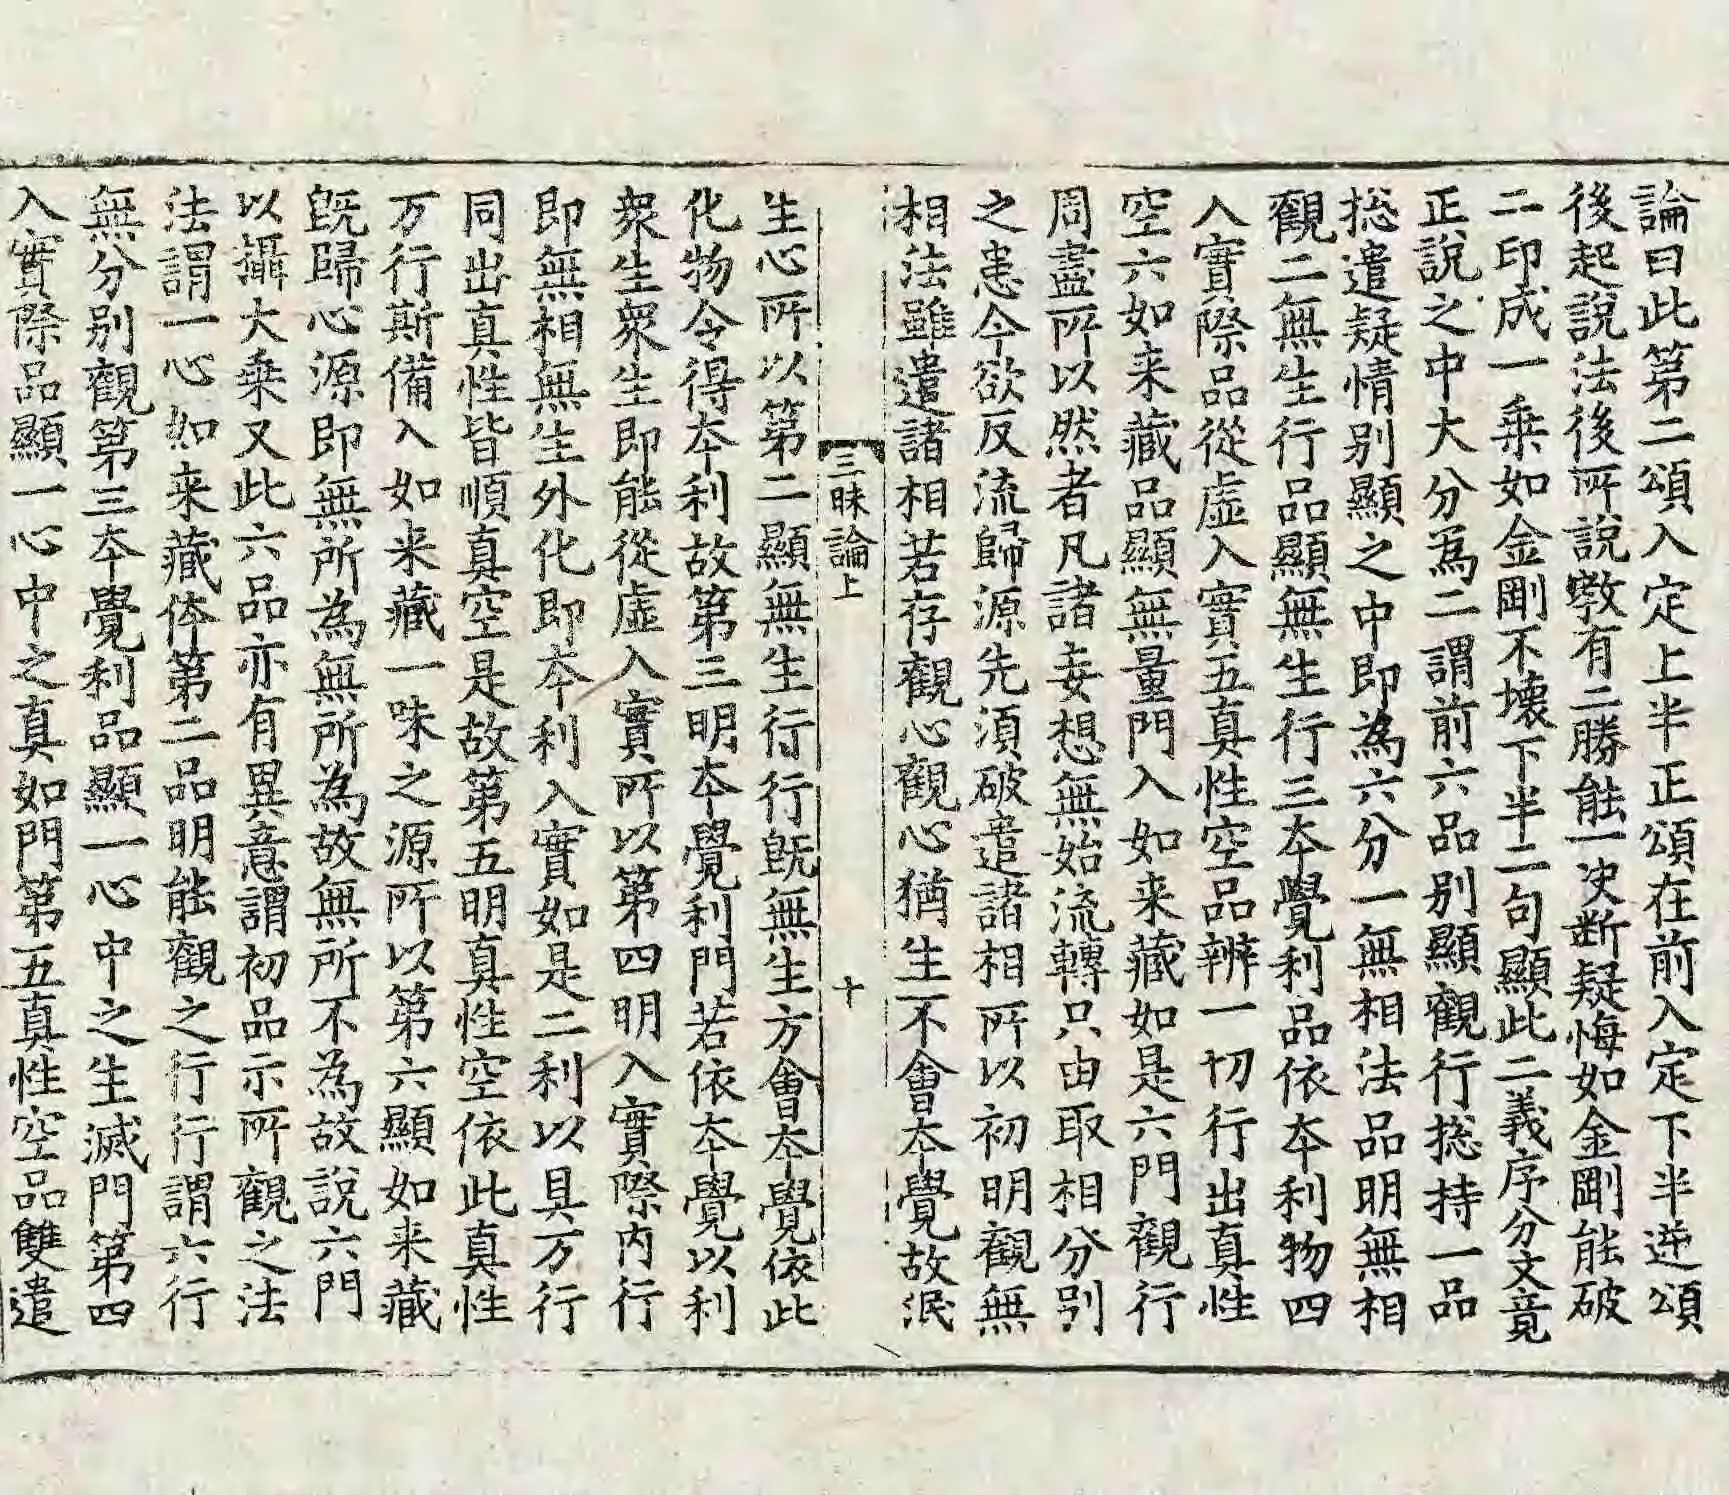 論曰此第二頌入定上半正頌在前入定下半逆頌
後起說法後所說敎有二勝能一决断疑悔如金剛能破
二印成一乗如金剛不壊下半二句顯此二義序分文竟
正說之中大分為二謂前六品别顯觀行揔持一品
揔遣疑情别顯之中即為六分一無相法品明無相
觀二無生行品顯無生行三夲覺利品依夲利物四
入實際品從虛入實五真性空品辨一切行出真性
空六如来藏品顯無量門入如来藏如是六門觀行
周盡所以然者凡諸妄想無始流轉只由取相分别
之患今欲反流歸源先須破遣諸相所以初明觀無
相法雖遣諸相若存觀心觀心猶生不會夲覺故泯
三昧論上 十
生心所以第二顯無生行行既無生方會夲覺依此
化物令得夲利故第三明夲覺利門若依夲覺以利
衆生衆生即能從虛入實所以第四明入實際内行
即無相無生外化即夲利入實如是二利以具万行
同出真性皆順真空是故第五明真性空依此真性
万行斯備入如来藏一味之源所以第六顯如来藏
旣歸心源即無所為無所為故無所不為故說六門
以攝大乗又此六品亦有異意謂初品示所觀之法
法謂一心如来藏体第二品明能觀之行行謂六行
無分别觀第三夲覺利品顯一心中之生滅門第四
入實際品顯一心中之真如門第五真性空品雙遣